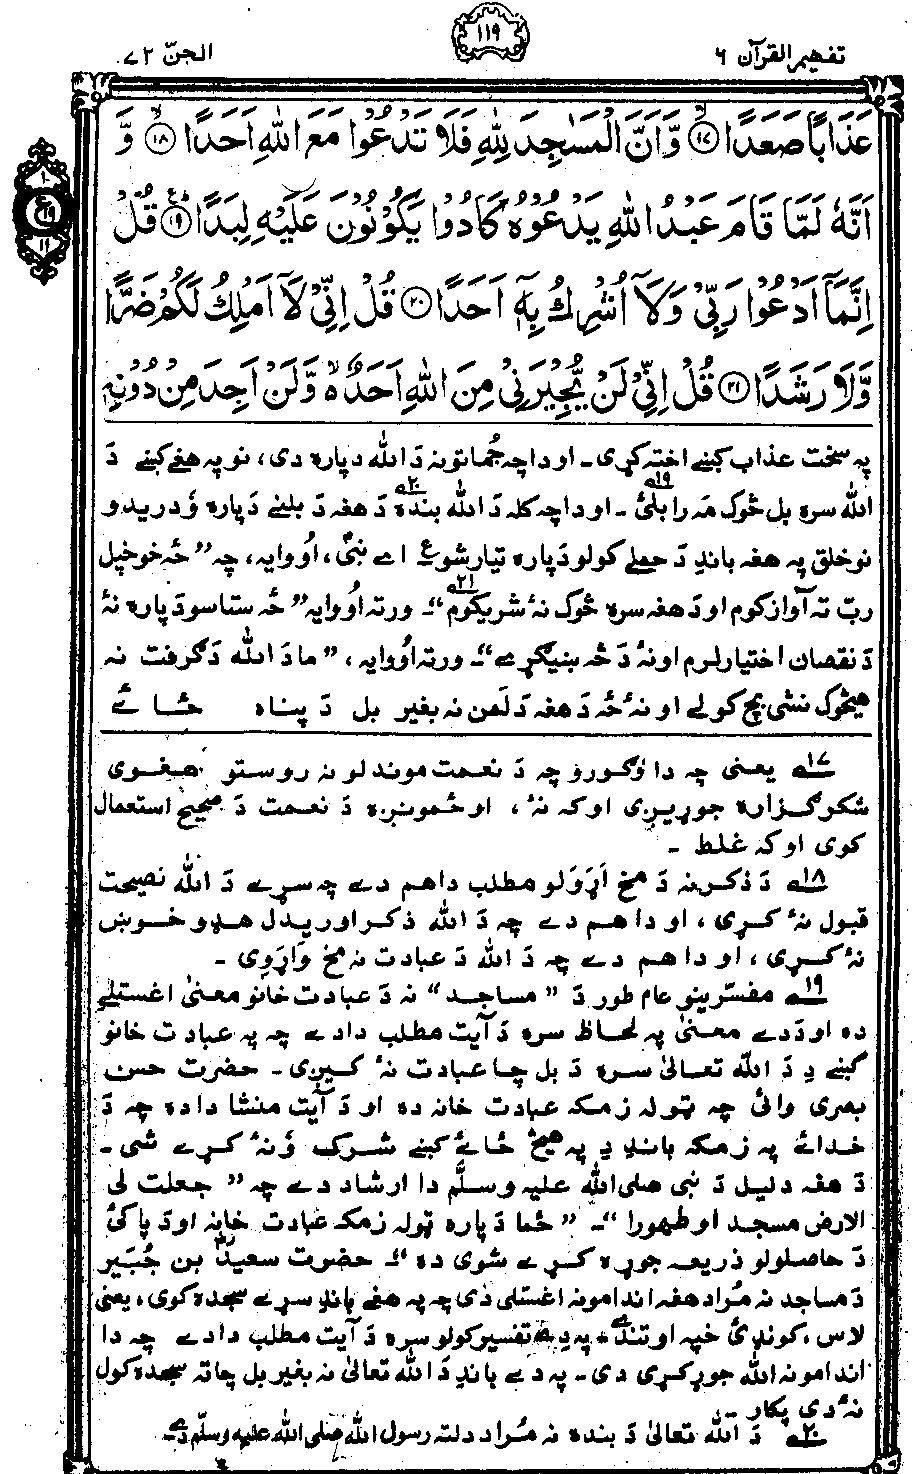 تفهيم القرآن ۶
۱۱۹
الجنّ ۷۲
عَذَابًا صَعَدًا ۝۱۷ وَّاَنَّ الْمَسٰجِدَ لِلّٰهِ فَلَا تَدْعُوْا مَعَ اللّٰهِ اَحَدًا ۝۱۸ وَّ
اَنَّهٗ لَمَّا قَامَ عَبْدُ اللّٰهِ يَدْعُوْهُ كَادُوْا يَكُوْنُوْنَ عَلَيْهِ لِبَدًا ۝۱۹ قُلْ
اِنَّمَآ اَدْعُوْا رَبِّيْ وَلَآ اُشْرِكُ بِهٖٓ اَحَدًا ۝۲۰ قُلْ اِنِّيْ لَآ اَمْلِكُ لَكُمْ ضَرًّا
وَّلَا رَشَدًا ۝۲۱ قُلْ اِنِّيْ لَنْ يُّجِيْرَنِيْ مِنَ اللّٰهِ اَحَدٌ ەۙ وَّلَنْ اَجِدَ مِنْ دُوْنِهٖ
په سخت عذاب کښے اخته کړی۔ او دا چه جُماتونه دَ الله دپاره دی، نو په هغے کښے دَ
الله سره بل څوک مَه رابلئ ۱۹ـه ۔ او دا چه کله دَ الله بنده ۲۰ـه دَ هغه دَ بللنے دَپاره ودریدو
نو خلق په هغه باندِ دَ حملے کولو دَپاره تیار شو ع اے نبیؐ، اُووایه، چه ”څه خو خپل
ربّ ته آواز کوم او دَ هغه سره څوک نهٔ شریکوم ۲۱ـه“۔ ورته اُووایه ”څه ستاسو دَپاره نهٔ
دَ نقصان اختیار لرم او نهٔ دَ څه ښیګړے“۔ ورته اُووایه، ”ما دَ الله دَ ګرفت نه
هیڅوک نشی بچ کولے او نهٔ څه دَ هغه دَ لمن نه بغیر بل دَ پناه ځائے
۱۷ـه یعنی چه دا وګورو چه دَ نعمت موندلو نه روستو هغوی
شکر ګزاره جوړیږی او که نهٔ، او څمونږه دَ نعمت دَ صحیح استعمال
کوی او که غلط ۔
۱۸ـه دَ ذکر نه دَ مخ اَړولو مطلب دا هم دے چه سړے دَ الله نصیحت
قبول نهٔ کړی، او دا هم دے چه دَ الله ذکر اوریدل هډو خوښ
نهٔ کړی، او دا هم دے چه دَ الله دَ عبادت نه مخ واړوی ۔
۱۹ـه مفسّرینو عام طور دَ ”مساجد“ نه دَ عبادت خانو معنیٰ اغستلے
ده او دَ دے معنیٰ په لحاظ سره دَ آیت مطلب دا دے چه په عبادت خانو
کښے دِ دَ الله تعالیٰ سره دَ بل چا عبادت نهٔ کیږی ۔ حضرت حسن
بصری وائی چه ټوله زمکه عبادت خانه ده او دَ آیت منشا دا ده چه دَ
خدائے په زمکه باندِ دِ په هیڅ ځائے کښے شرک ونهٔ کړے شی ۔
دَ هغه دلیل دَ نبی صلی الله علیه وسلّم دا ارشاد دے چه ”جعلت لی
الارض مسجد او طهورا“۔ ”څما دَ پاره ټوله زمکه عبادت خانه او دَ پاکئ
دَ حاصلولو ذریعه جوړه کړے شوی ده“۔ حضرت سعیدؓ بن جُبَیر
دَ مساجد نه مُراد هغه اندامونه اغستلی دی چه په هغے باندِ سړے سجده کوی، یعنی
لاس، ګونډئ، خپه او تندے ۔ په دِ تفسیر کولو سره دَ آیت مطلب دا دے چه دا
اندامونه الله جوړ کړی دی ۔ په دے باندِ دَ الله تعالیٰ نه بغیر بل چا ته سجده کول
نهٔ دی پکار ۔
۲۰ـه دَ الله تعالیٰ دَ بنده نه مُراد دلته رسول الله صلی الله علیه وسلّم دے ۔